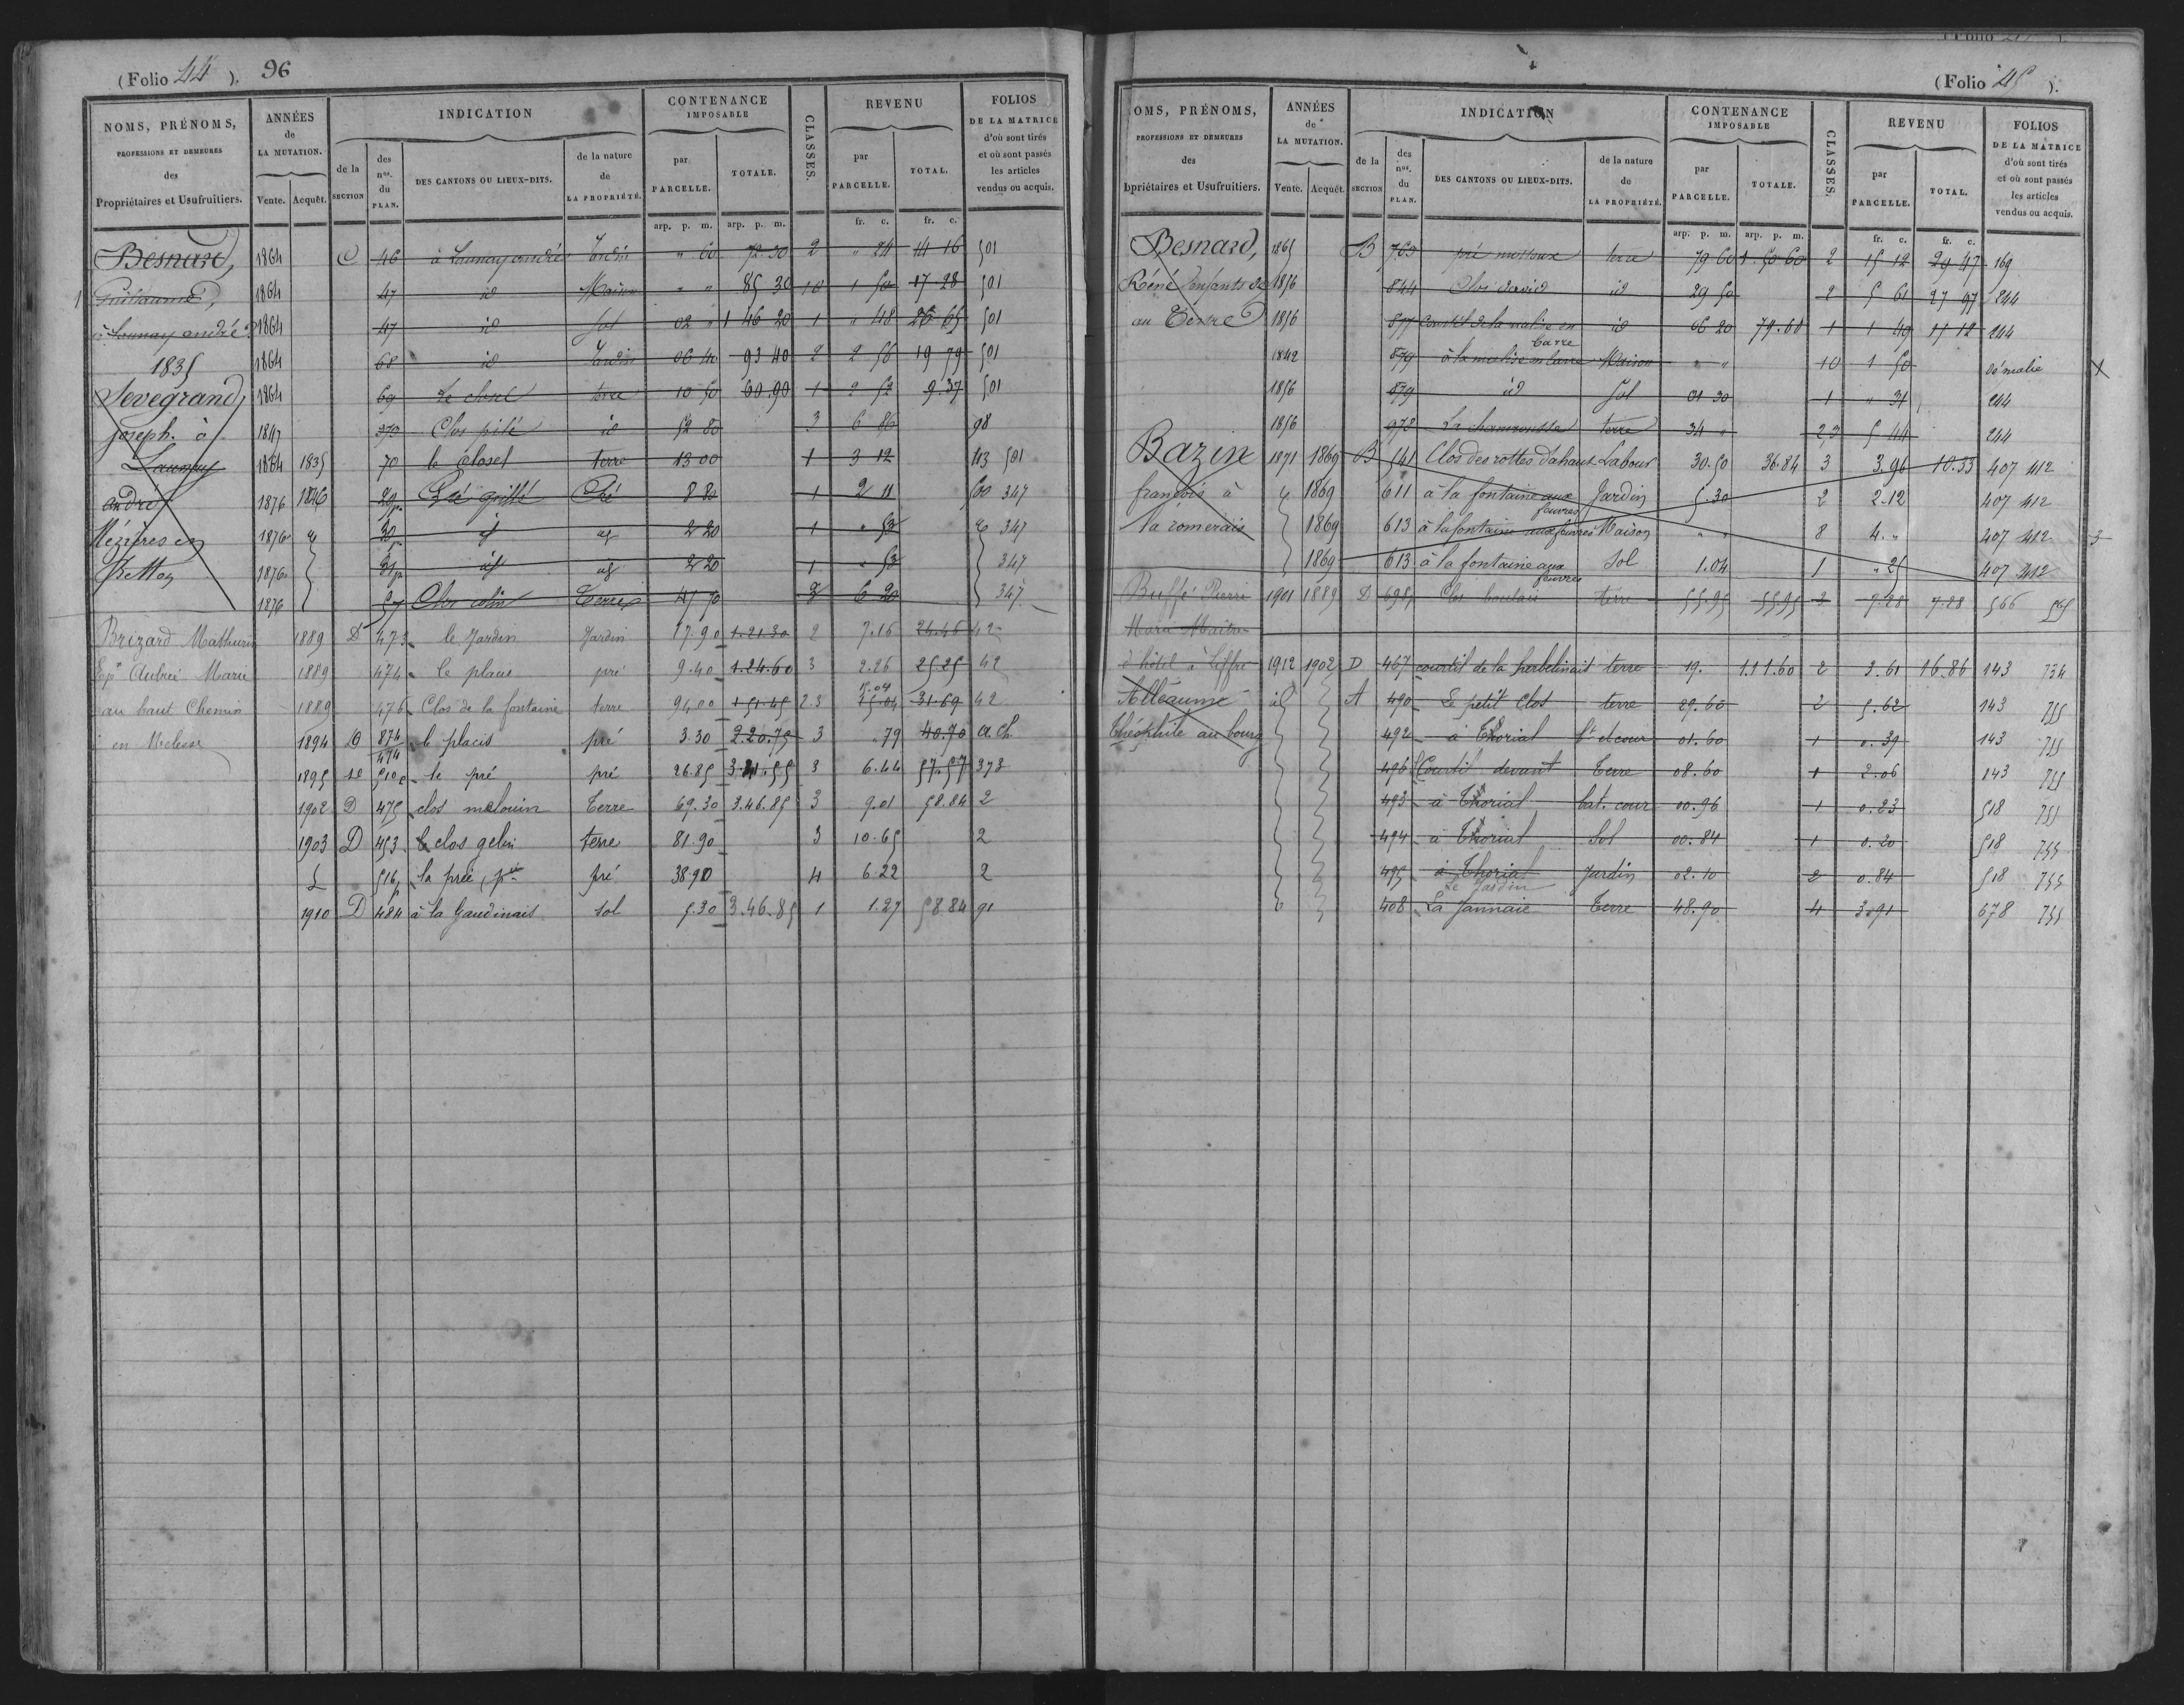 (Folio 44). 96
NOMS, PRÉNOMS, PROFESSIONS ET DEMEURES des Propriétaires et Usufruitiers.
ANNÉES de LA MUTATION. Vente. Acquêt.
INDICATION
de la SECTION
des nos. du PLAN.
DES CANTONS OU LIEUX-DITS.
de la nature de LA PROPRIÉTÉ.
CONTENANCE IMPOSABLE
par PARCELLE. TOTALE.
CLASSES.
REVENU
par PARCELLE. TOTAL.
FOLIOS DE LA MATRICE d'où sont tirés et où sont passés les articles vendus ou acquis.
arp. p. m. arp. p. m. fr. c. fr. c.
Besnard, 1864 C 46 à Launay andré Jardin " 60 72 30 2 " 24 14 16 501
1 Guillaume, 1864 47 id Maison " " 85 30 10 1 50 17 28 501
à Launay andré 1864 47 id Sol 02 " 1 46 20 1 " 48 26 65 501
1835 1864 68 id Jardin 06 40 93 40 2 2 56 19 79 501
Sevegrand, 1864 69 Le closel terre 10 50 60 90 1 2 52 9 37 501
joseph. à 1847 373 Clos pilé id 52 80 3 6 86 98
Launay 1864 1835 70 le closel terre 13 00 1 3 12 113 501
andré 1876 1846 29p Pré grillé Pré 8 80 1 2 11 500 347
Mézières en 1876 30p id id 2 20 1 " 53 347
Betton 1876 31p id id 2 20 1 " 53 347
1876 57 Clos colin Terre 47 70 3 6 20 347
Brizard Mathurin 1889 D 473 le Jardin Jardin 17.90 1.21.30 2 7.16 24.46 42
Ep. Aubrée Marie 1889 474 le placis pré 9.40 1.24.60 3 2.26 25.25 42
au haut Chemin 1889 476 Clos de la fontaine terre 94.00 1.51.45 2.3 15.04 31.69 42
en Melesse 1894 D 874/474 le placis pré 3.30 2.20.75 3 .79 40.70 a.ch.
1895 id 510p le pré pré 26.85 3.41.55 3 6.44 57.57 373
1902 D 475 clos malouin Terre 69.30 3.46.85 3 9.01 58.84 2
1903 D 453 le clos gelin terre 81.90 3 10.65 2
516p la prée, pie pré 38.90 4 6.22 2
1910 D 484 à la Gaudinais sol 5.30 3.46.85 1 1.27 58.84 91
(Folio 45).
OMS, PRÉNOMS, PROFESSIONS ET DEMEURES des opriétaires et Usufruitiers.
ANNÉES de LA MUTATION. Vente. Acquêt.
INDICATION
de la SECTION
des nos. du PLAN.
DES CANTONS OU LIEUX-DITS.
de la nature de LA PROPRIÉTÉ.
CONTENANCE IMPOSABLE
par PARCELLE. TOTALE.
CLASSES.
REVENU
par PARCELLE. TOTAL.
FOLIOS DE LA MATRICE d'où sont tirés et où sont passés les articles vendus ou acquis.
arp. p. m. arp. p. m. fr. c. fr. c.
Besnard, 1865 B 763 pré mottoux terre 79 60 1. 50 60 2 15 12 29 47 169
Réné (enfants de) 1856 844 Clos david id 29 50 2 5 61 27 97 244
au Tertre 1856 877 courtil de la malise en barre id 06 20 79.60 1 1 49 11 12 244
1842 879 à la malise en barre Maison " " 10 1 50 démolie X
1856 879 id Sol 01 30 1 " 31 244
1856 972 La chamrousse terre 34 " 23 5 44 244
Bazin 1871 1869 B 541 Clos des rottes d'ahaut Labour 30.50 36.84 3 3.96 10.33 407 412
françois à 1869 611 à la fontaine aux feuvres Jardin 5.30 2 2.12 407 412
la romerais 1869 613 à la fontaine aux feuvres Maison " " 8 4." 407 412 3
1869 613 à la fontaine aux feuvres Sol 1.04 1 " 25 407 412
Buffé Pierre 1901 1889 D 698 Clos boulais terre 55.95 55.95 3 7.28 7.28 566 565
Maitre
d'hôtel à Liffré 1912 1902 D 467 courtil de la herbelinais terre 19. 1.11.60 2 3.61 16.86 143 734
Alleaume id A 490 Le petit Clos terre 29.60 2 5.62 143 755
Théophile au bourg 492 à Thorial bt et cour 01.60 1 0.39 143 755
496 Courtil devant Terre 08.60 1 2.06 143 755
493 à Thorial bat. cour 00.96 1 0.23 518 755
494 à Thorial Sol 00.84 1 0.20 518 755
495 à Thorial Le Jardin Jardin 02.10 2 0.84 518 755
408 La Jannaie Terre 48.90 4 3.91 678 755